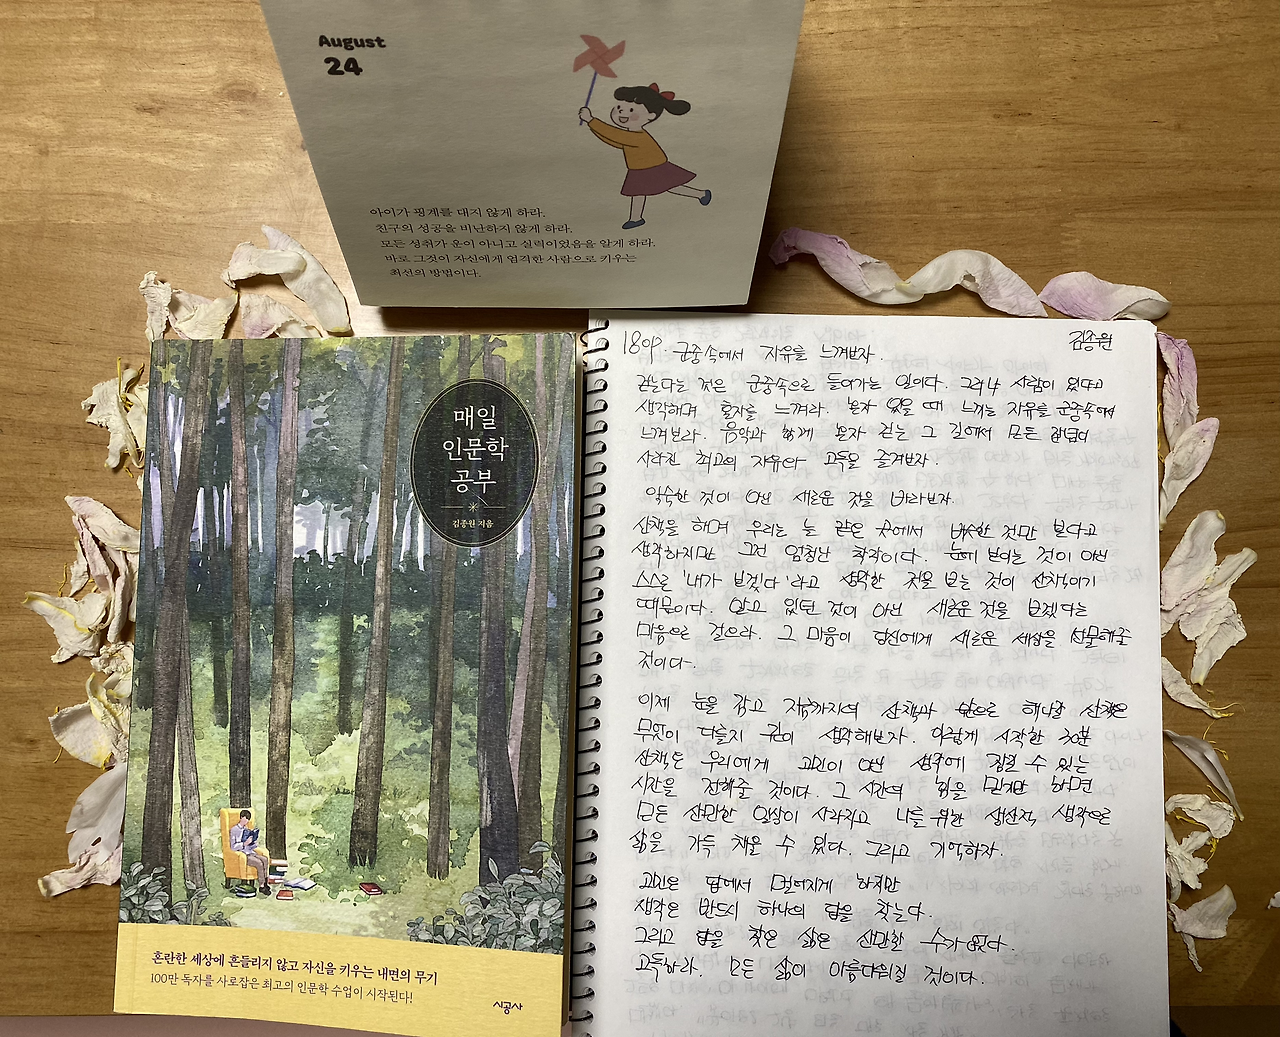 August
24
아이가 핑계를 대지 않게 하라.
친구의 성공을 비난하지 않게 하라.
모든 성취가 운이 아니고 실력이었음을 알게 하라.
바로 그것이 자신에게 엄격한 사람으로 키우는
최선의 방법이다.
매일
인문학
공부
김종원 지음
혼란한 세상에 흔들리지 않고 자신을 키우는 내면의 무기
100만 독자를 사로잡은 최고의 인문학 수업이 시작된다!
시공사
김종원
180P 군중속에서 자유를 느껴보자.
걷는다는 것은 군중속으로 들어가는 일이다. 그러나 사람이 있다고
생각하며 혼자를 느껴라. 혼자 있을 때 느끼는 자유를 군중속에서
느껴보라. 음악과 함께 혼자 걷는 그 길에서 모든 잡념이
사라진 최고의 자유와 고독을 즐겨보자.
익숙한 것이 아닌 새로운 것을 바라보자.
산책을 하며 우리는 늘 같은 곳에서 비슷한 것만 본다고
생각하지만 그건 엄청난 착각이다. 눈에 보이는 것이 아닌
스스로 '내가 보겠다'라고 생각한 것을 보는 것이 산책이기
때문이다. 알고 있던 것이 아닌 새로운 것을 보겠다는
마음으로 걸으라. 그 마음이 당신에게 새로운 세상을 선물해줄
것이다.
이제 눈을 감고 지금까지의 산책과 앞으로 해나갈 산책은
무엇이 다를지 깊이 생각해보자. 이렇게 시작한 30분
산책은 우리에게 고민이 아닌 생각에 잠길 수 있는
시간을 전해줄 것이다. 그 시간의 힘을 믿기만 하면
모든 산만한 일상이 사라지고 나를 위한 생산적 생각으로
삶을 가득 채울 수 있다. 그리고 기억하자.
고민은 답에서 멀어지게 하지만
생각은 반드시 하나의 답을 찾는다.
그리고 답을 찾은 삶은 산만할 수가 없다.
고독하라. 모든 삶이 아름다워질 것이다.